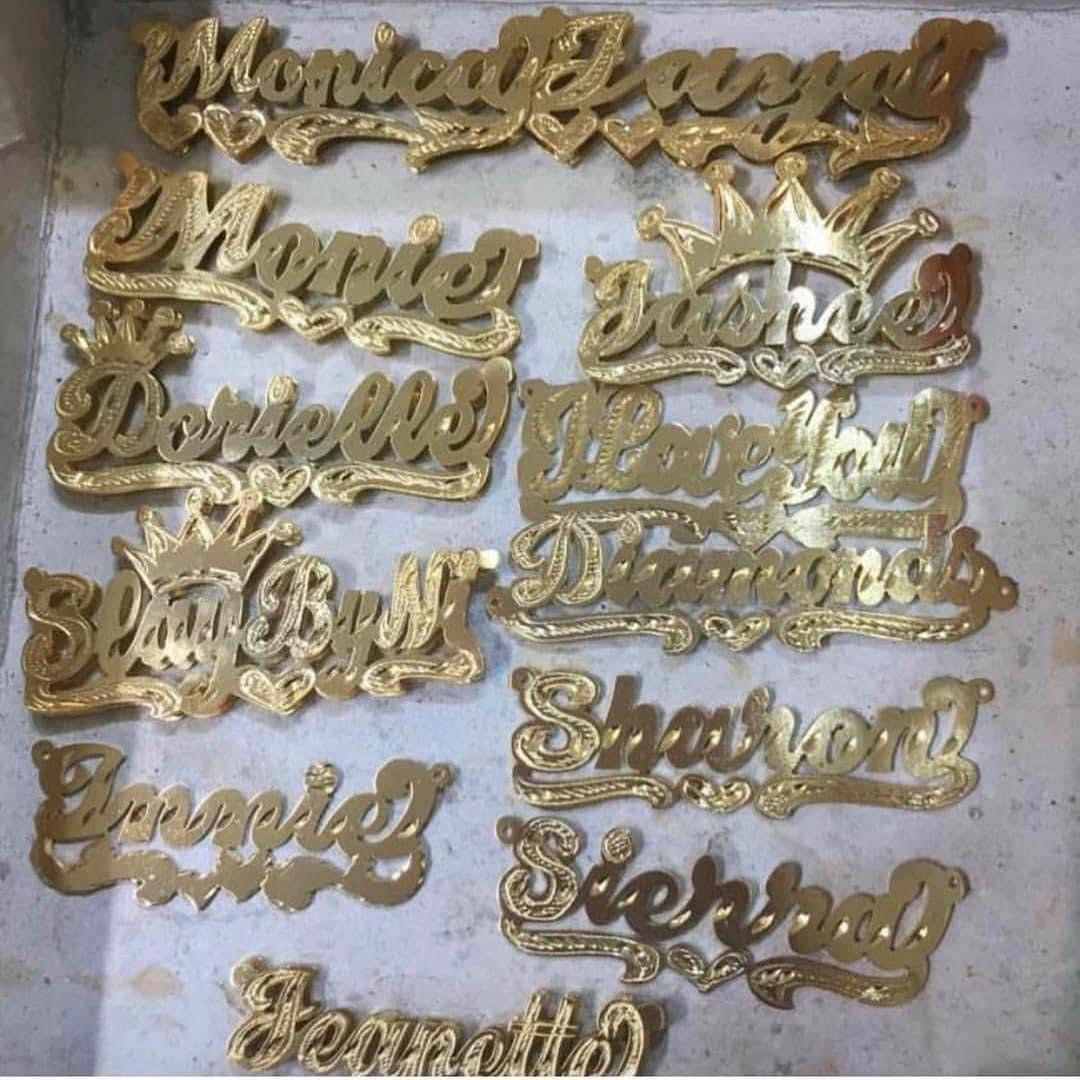 Monica Zanya
Monie
Jashee
Dorielle
I Love You
Slay By N
Diamonds
Sharon
Innie
Sierra
Jeanette